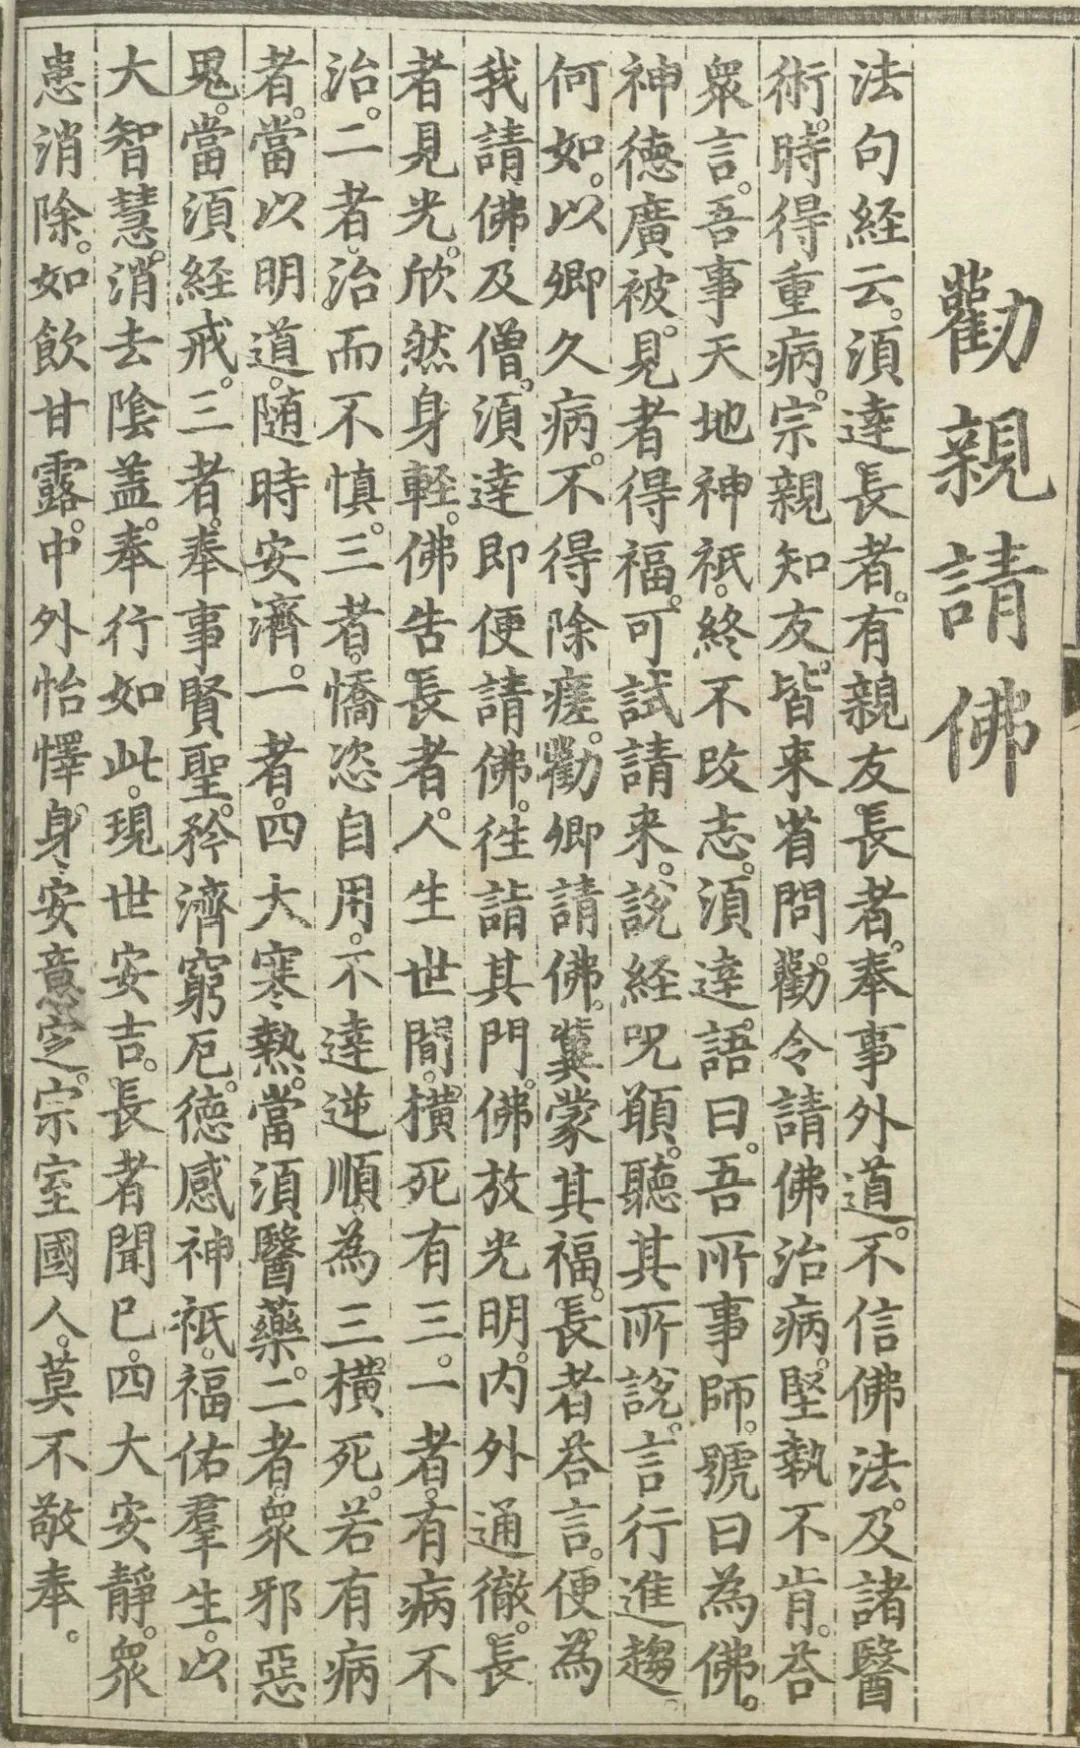 勸親請佛
法句経云。須達長者。有親友長者。奉事外道。不信佛法。及諸醫
術。時得重病。宗親知友。皆来省問。勸令請佛治病。堅執不肯。荅
衆言。吾事天地神祇。終不改志。須達語曰。吾所事師。號曰為佛。
神德廣被。見者得福。可試請来。說経呪願。聽其所說。言行進趨。
何如。以卿久病。不得除瘥。勸卿請佛。冀蒙其福。長者荅言。便為
我請佛及僧。須達即便請佛。徃詣其門。佛放光明。內外通徹。長
者見光。欣然身輕。佛告長者。人生世間。橫死有三。一者。有病不
治。二者。治而不慎。三者。憍恣自用。不達逆順。為三橫死。若有病
者。當以明道。随時安濟。一者。四大寒熱。當須醫藥。二者。眾邪惡
鬼。當須経戒。三者。奉事賢聖。矜濟窮厄。德感神祇。福佑羣生。以
大智慧。消去陰蓋。奉行如此。現世安吉。長者聞已。四大安靜。眾
患消除。如飲甘露。中外怡懌。身安意定。宗室國人。莫不敬奉。